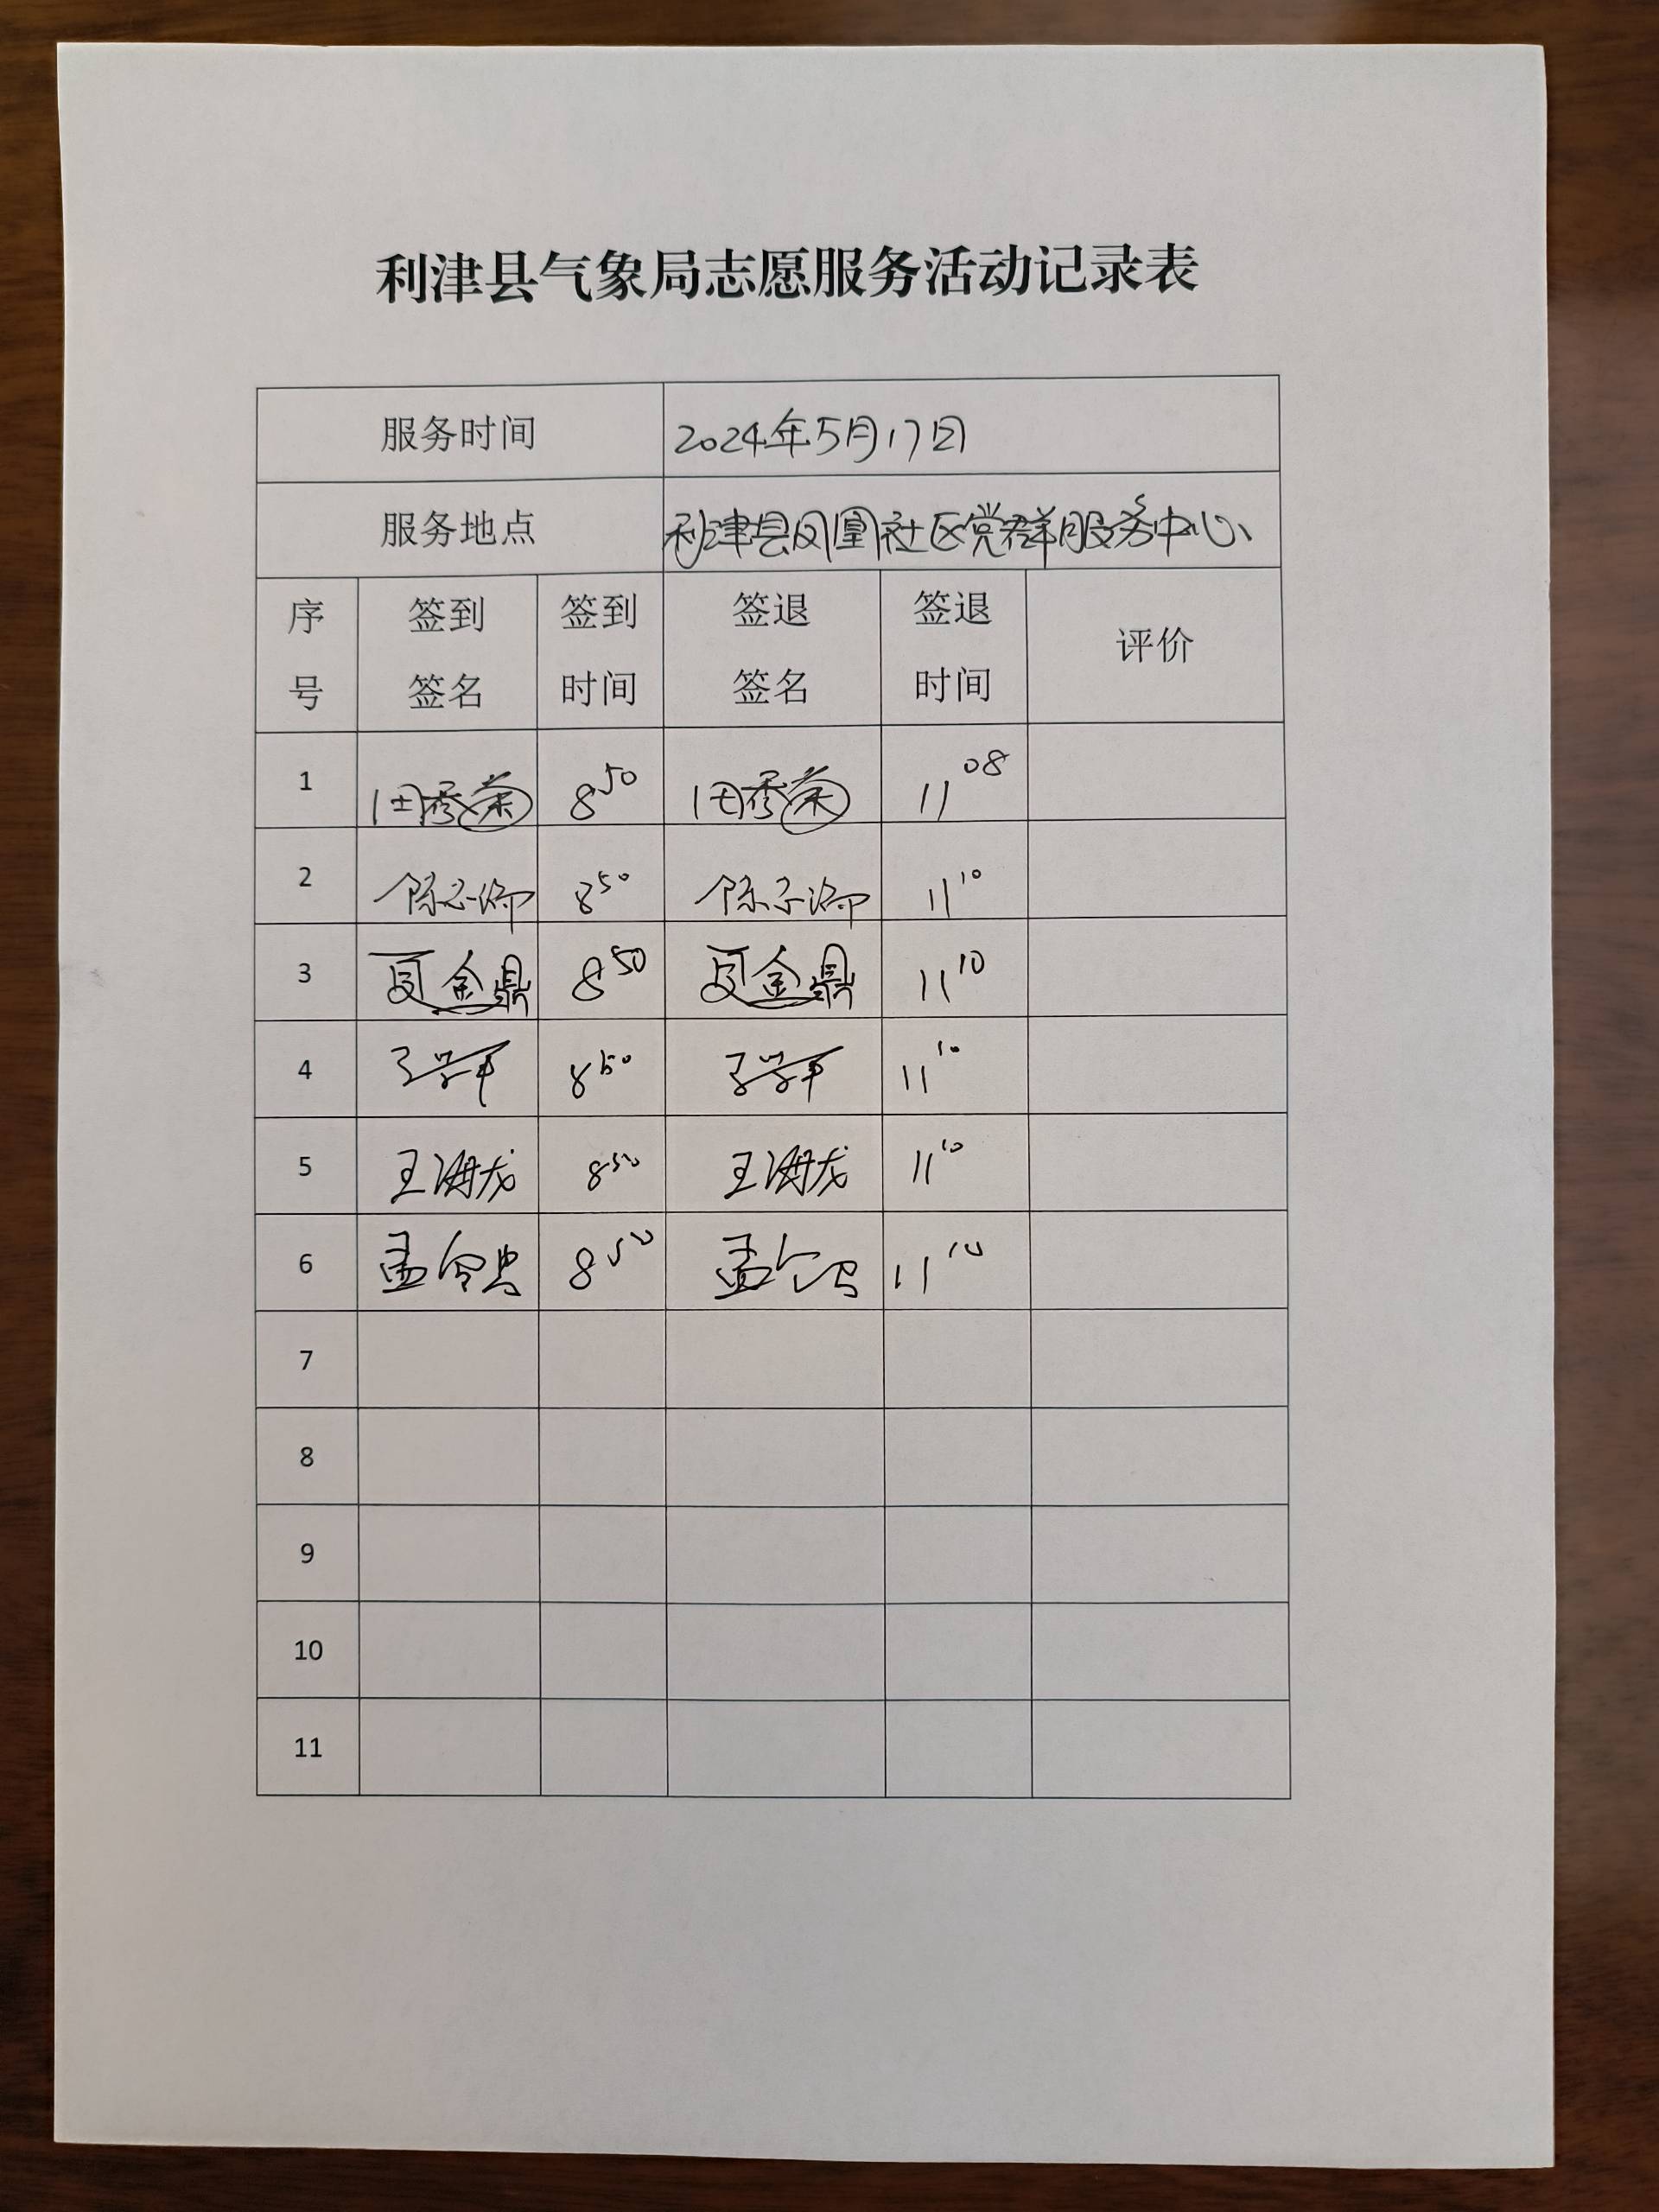 利津县气象局志愿服务活动记录表
服务时间 2024年5月17日
服务地点 利津县凤凰社区党群服务中心
序号 签到签名 签到时间 签退签名 签退时间 评价
1 田秀荣 8 50 田秀荣 11 08
2 陈 8 50 陈 11 10
3 夏金鼎 8 50 夏金鼎 11 10
4 8 50 11 10
5 王海龙 8 50 王海龙 11 10
6 孟令 8 50 孟令 11 10
7
8
9
10
11